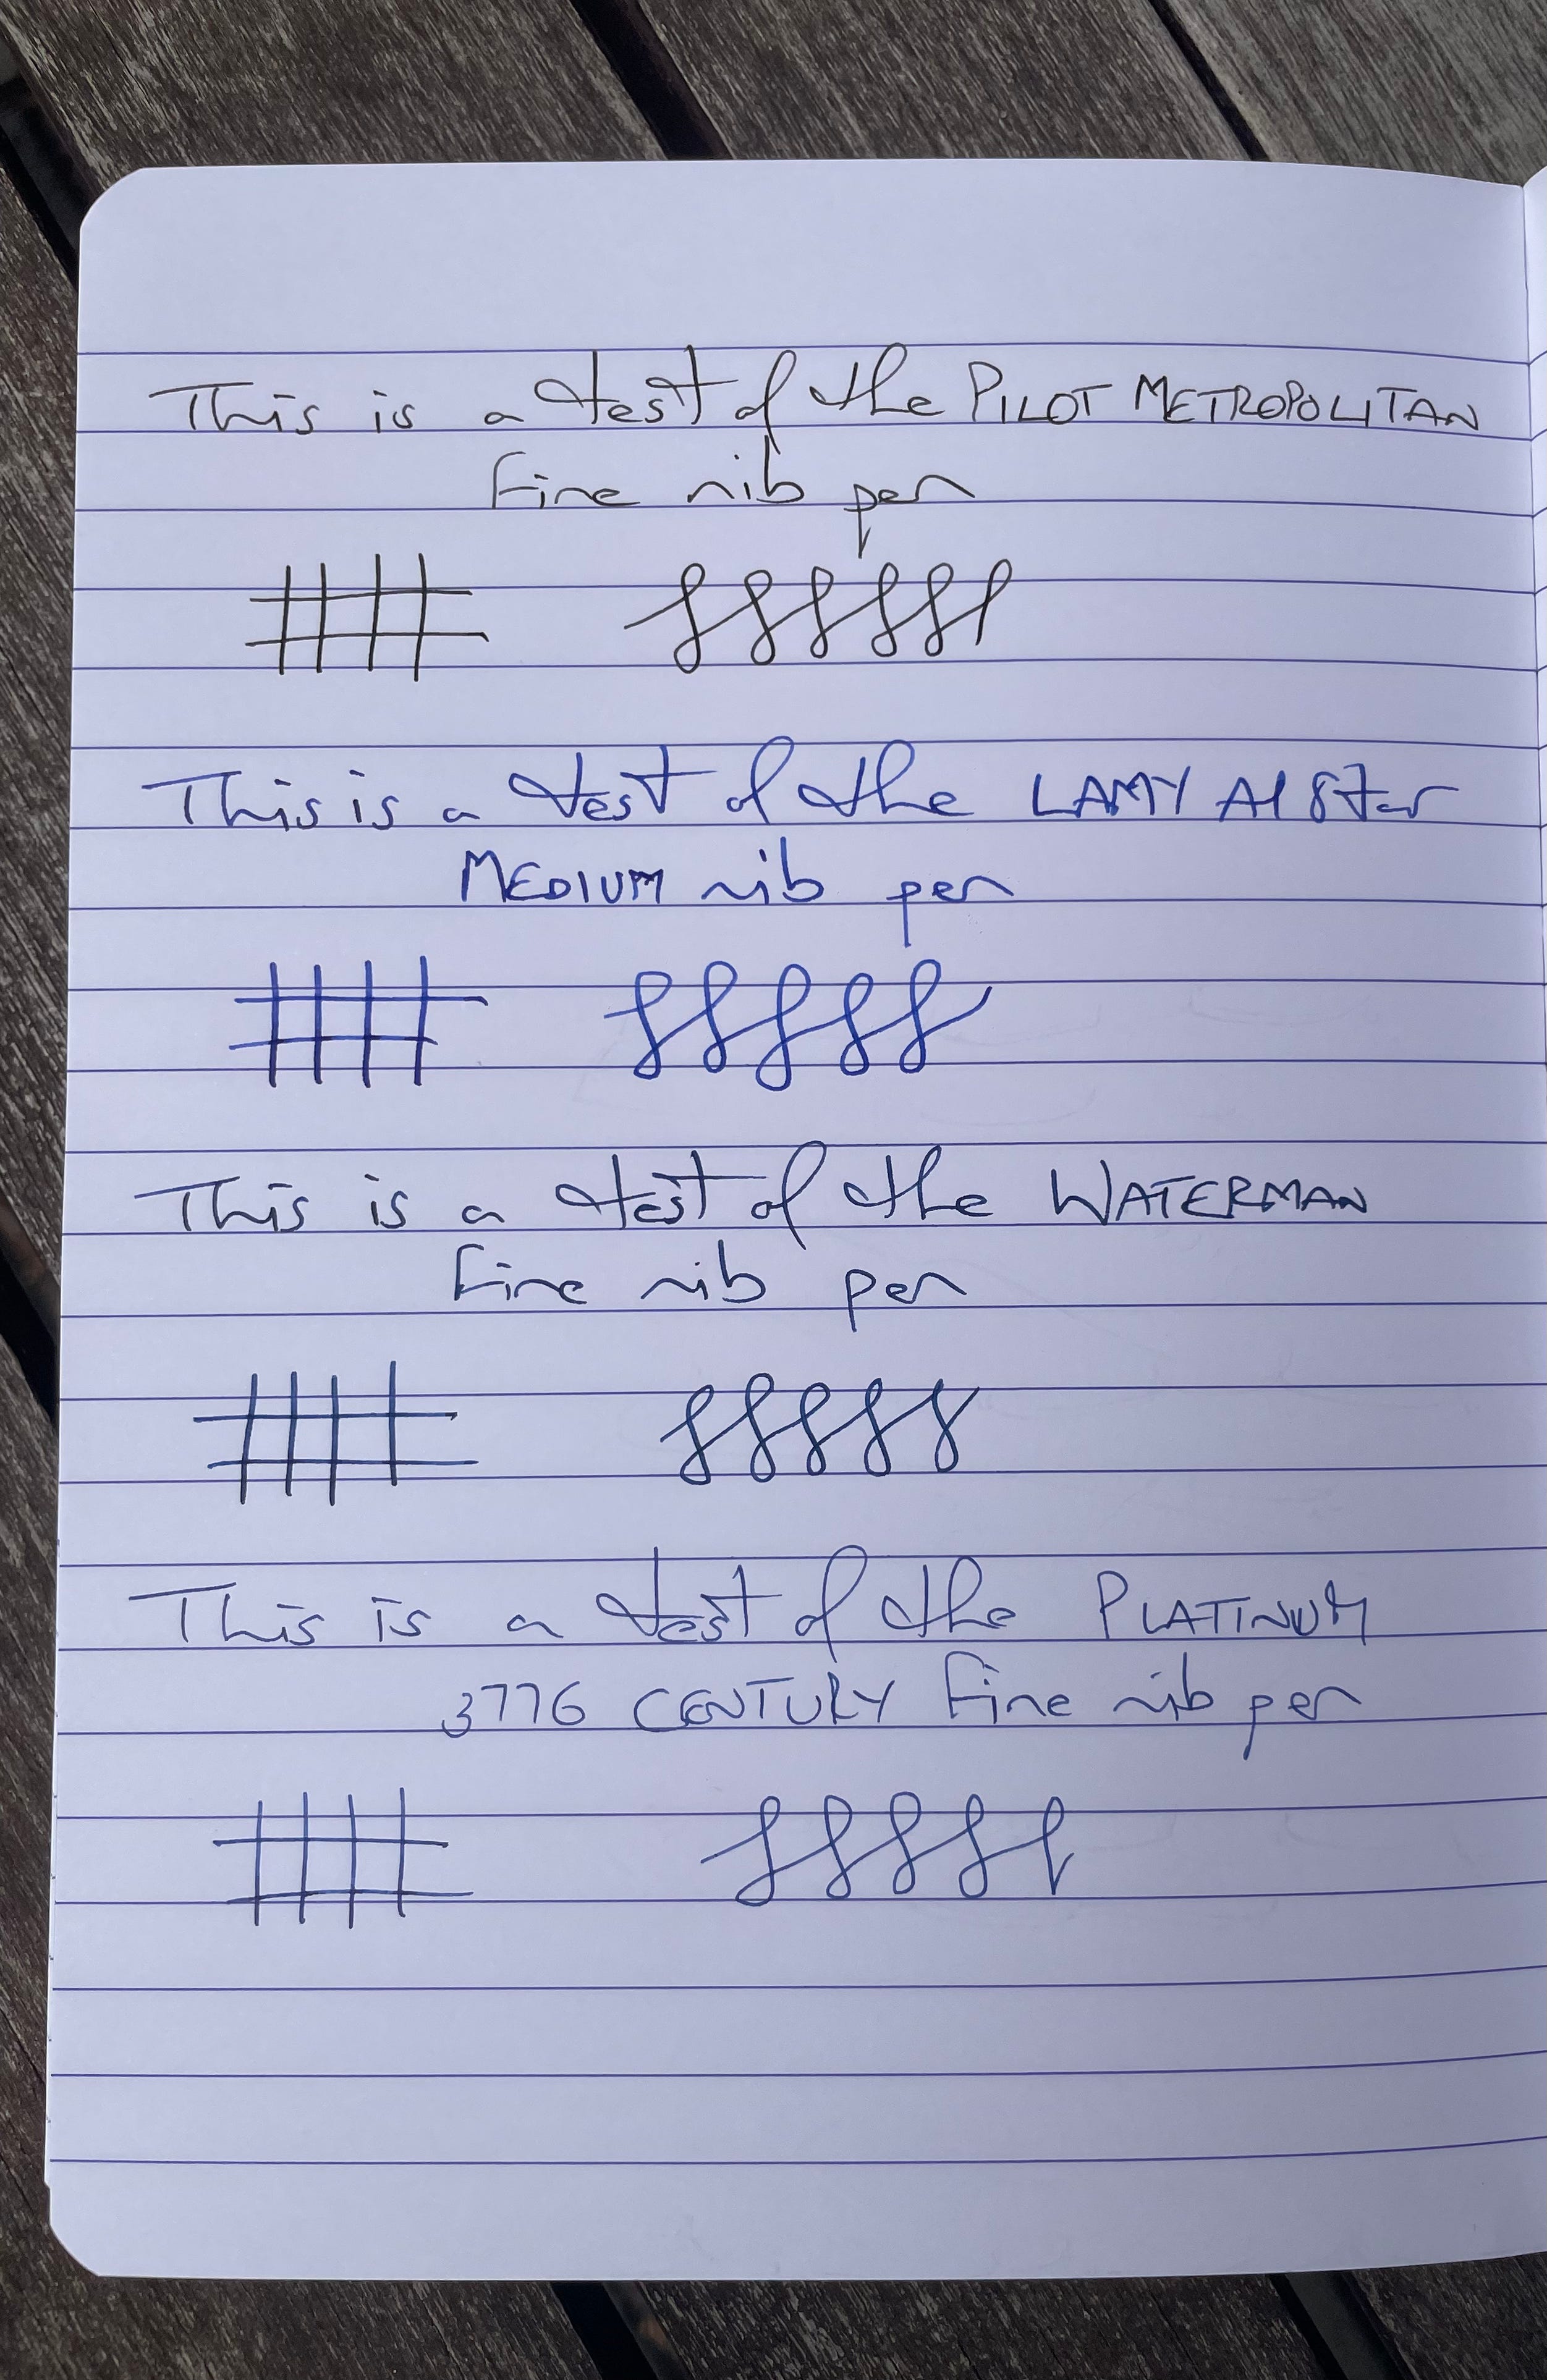 This is a test of the PILOT METROPOLITAN
Fine nib pen
This is a test of the LAMY Al Star
MEDIUM nib pen
This is a test of the WATERMAN
Fine nib pen
This is a test of the PLATINUM
3776 CENTURY Fine nib pen